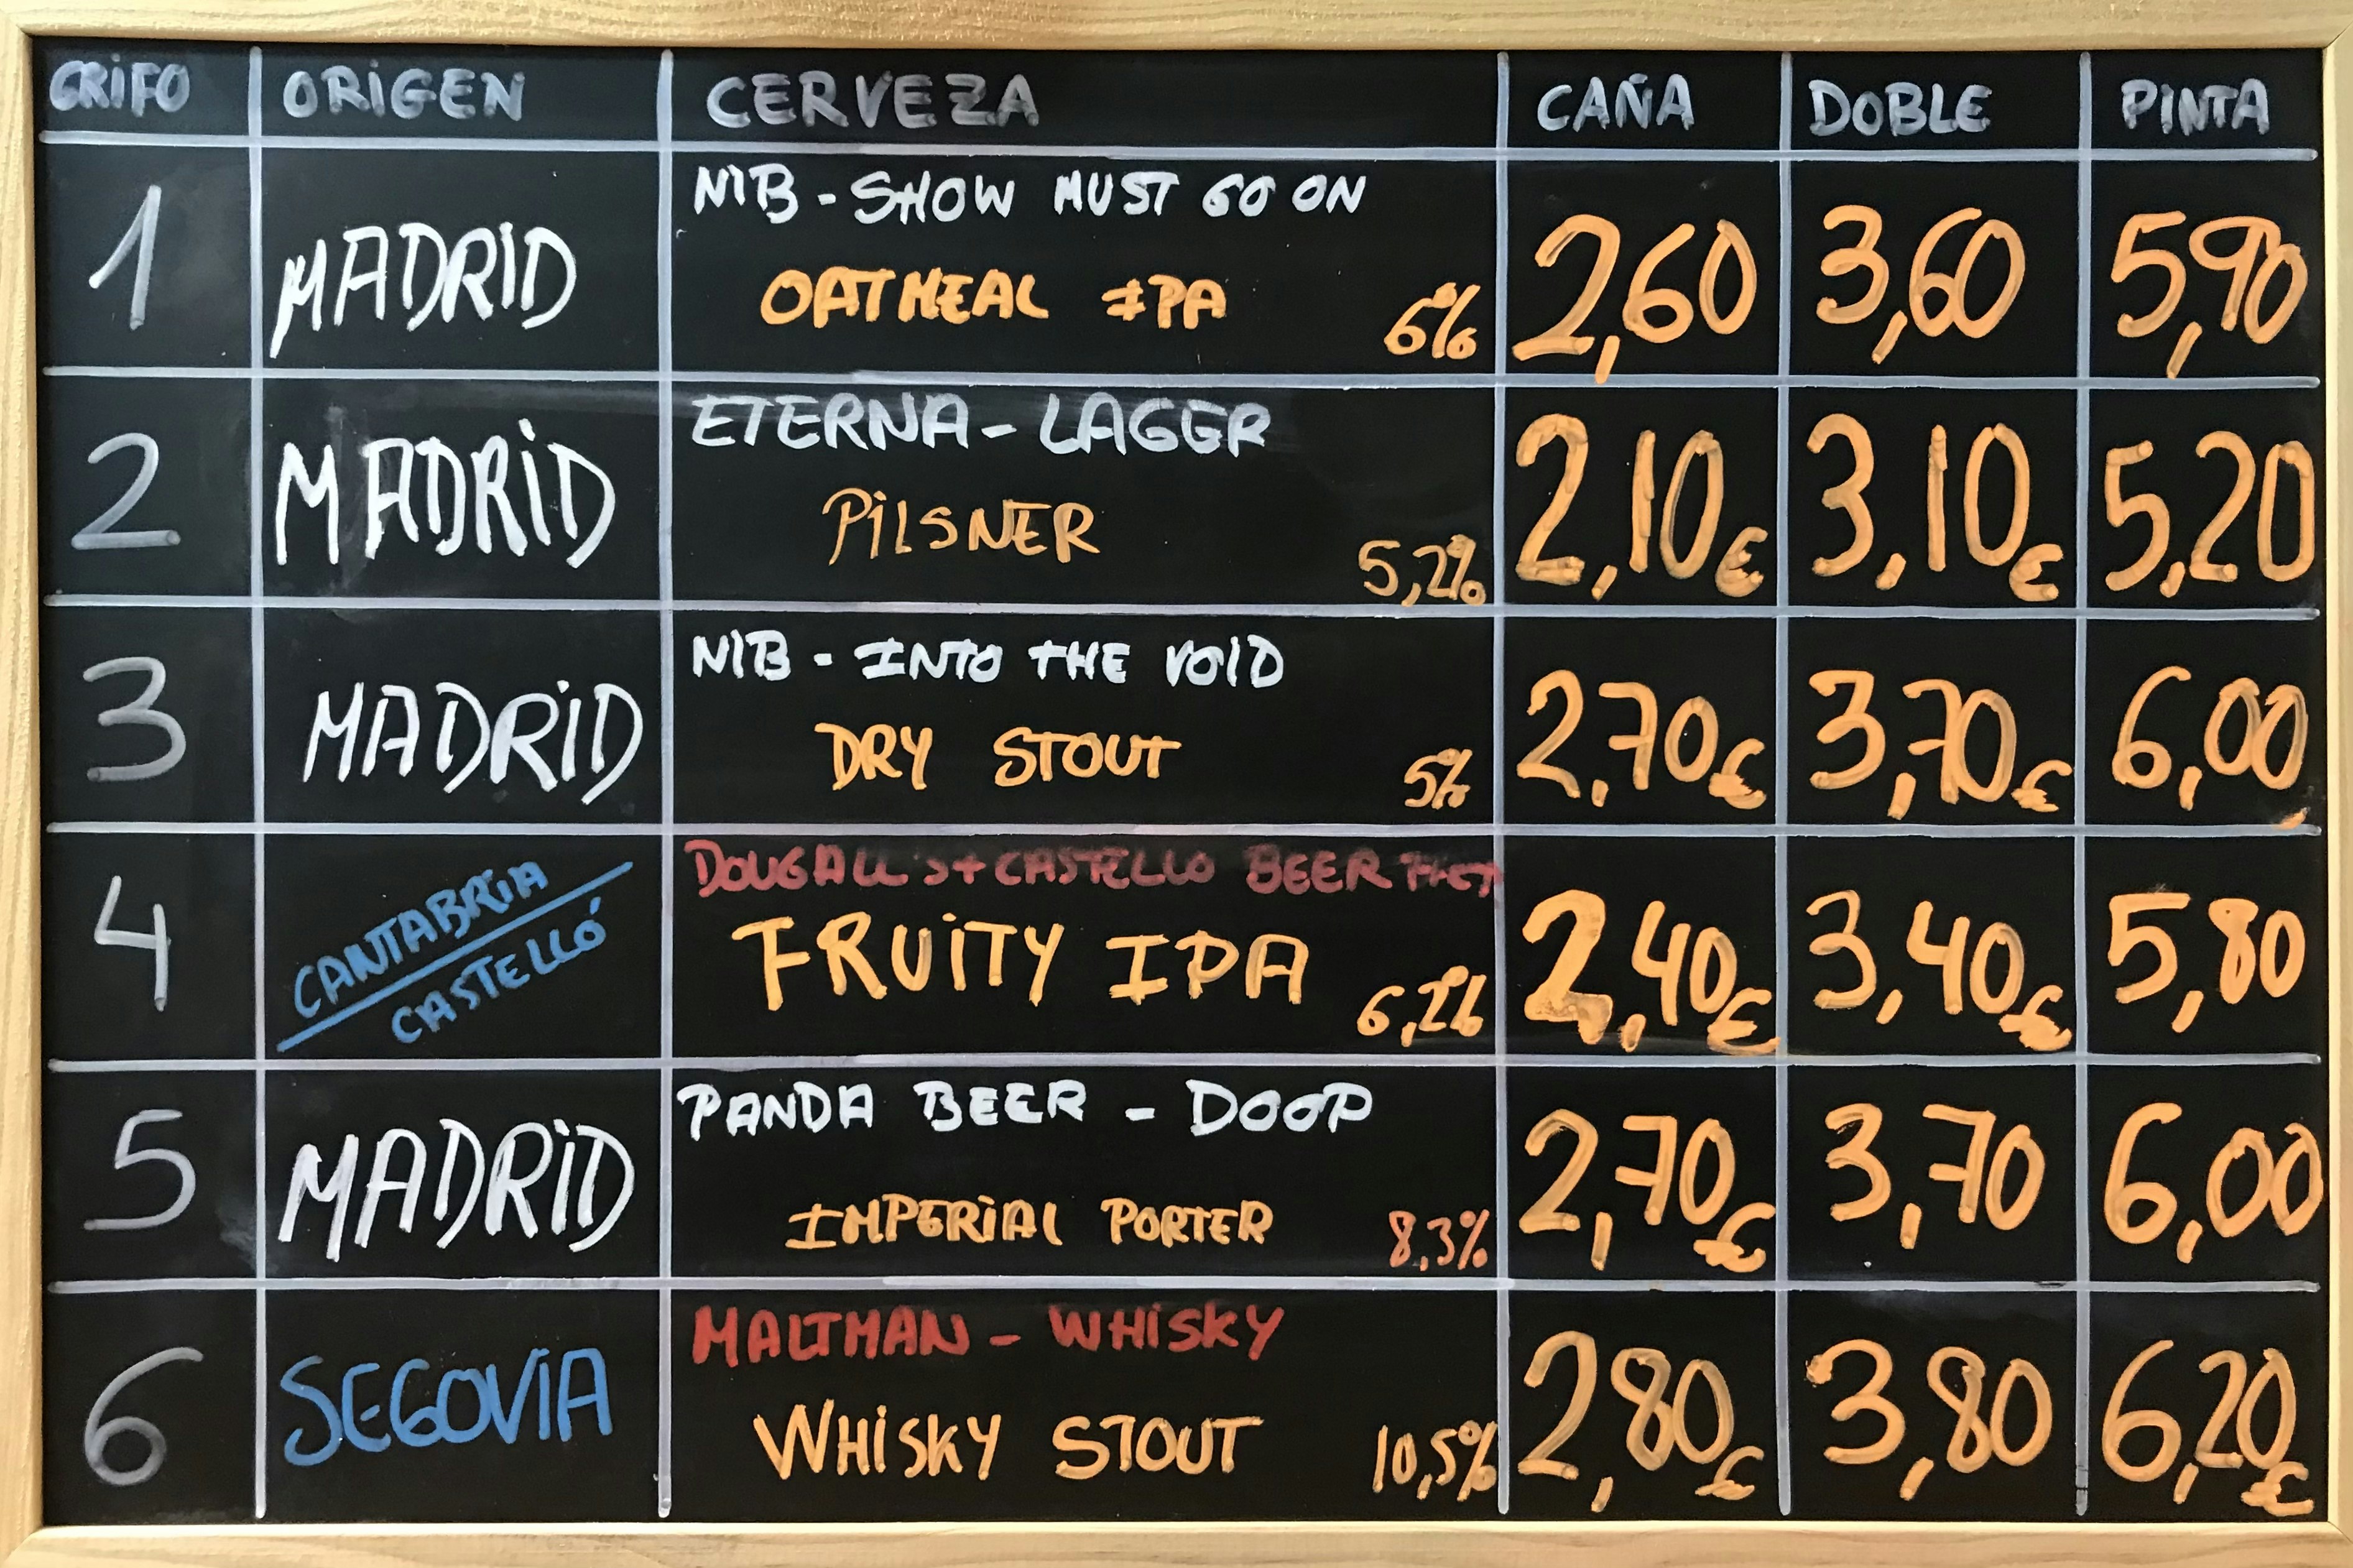 GRIFO ORIGEN CERVEZA CAÑA DOBLE PINTA
1 MADRID NIB - SHOW MUST GO ON
OATMEAL IPA 6% 2,60 3,60 5,90
2 MADRID ETERNA - LAGER
PILSNER 5,2% 2,10€ 3,10€ 5,20
3 MADRID NIB - INTO THE VOID
DRY STOUT 5% 2,70€ 3,70€ 6,00
4 CANTABRIA DOUGALL'S + CASTELLO BEER
CASTELLÓ FRUITY IPA 6,2% 2,40€ 3,40€ 5,80
5 MADRID PANDA BEER - DOOP
IMPERIAL PORTER 8,3% 2,70€ 3,70 6,00
6 SEGOVIA MALTMAN - WHISKY
WHISKY STOUT 10,5% 2,80€ 3,80 6,20€